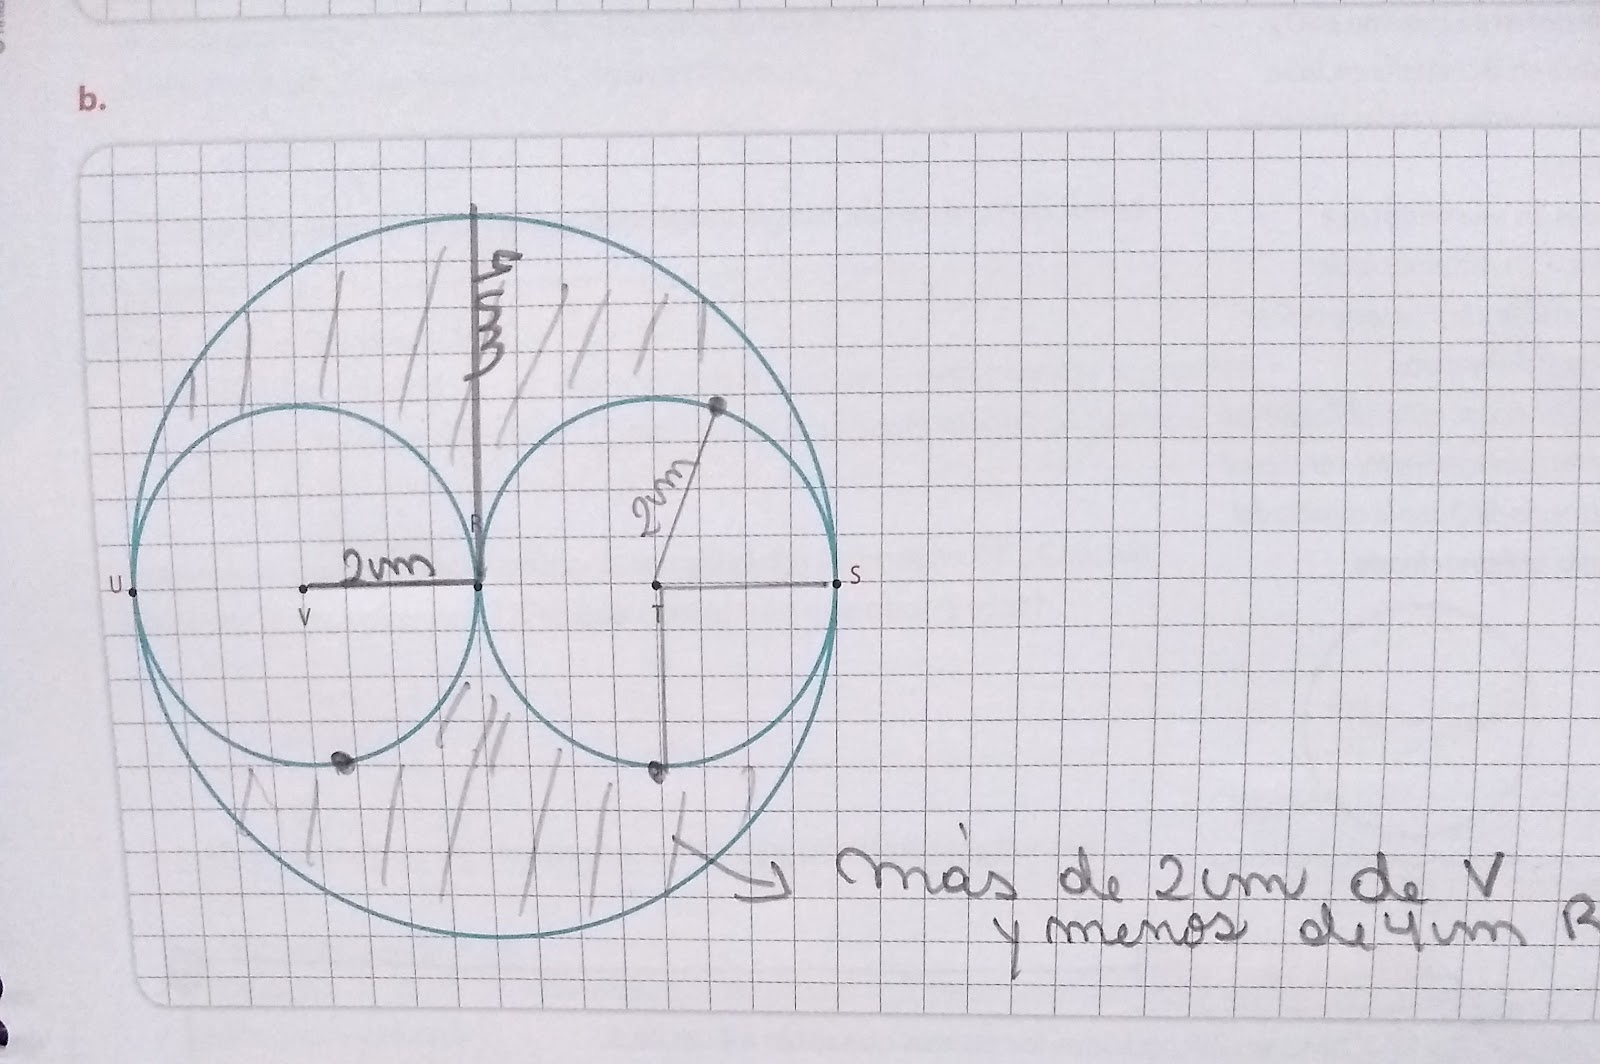 b.
4 cm
R
2cm
2cm
U
V
T
S
más de 2cm de V
y menos de 4cm R